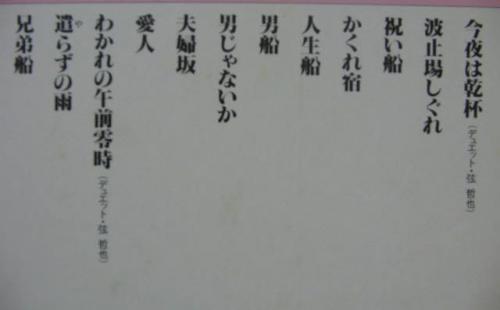 今夜は乾杯（デュエット・弦 哲也）
波止場しぐれ
祝い船
かくれ宿
人生船
男船
男じゃないか
夫婦坂
愛人
わかれの午前零時（デュエット・弦 哲也）
遣らずの雨
や
兄弟船